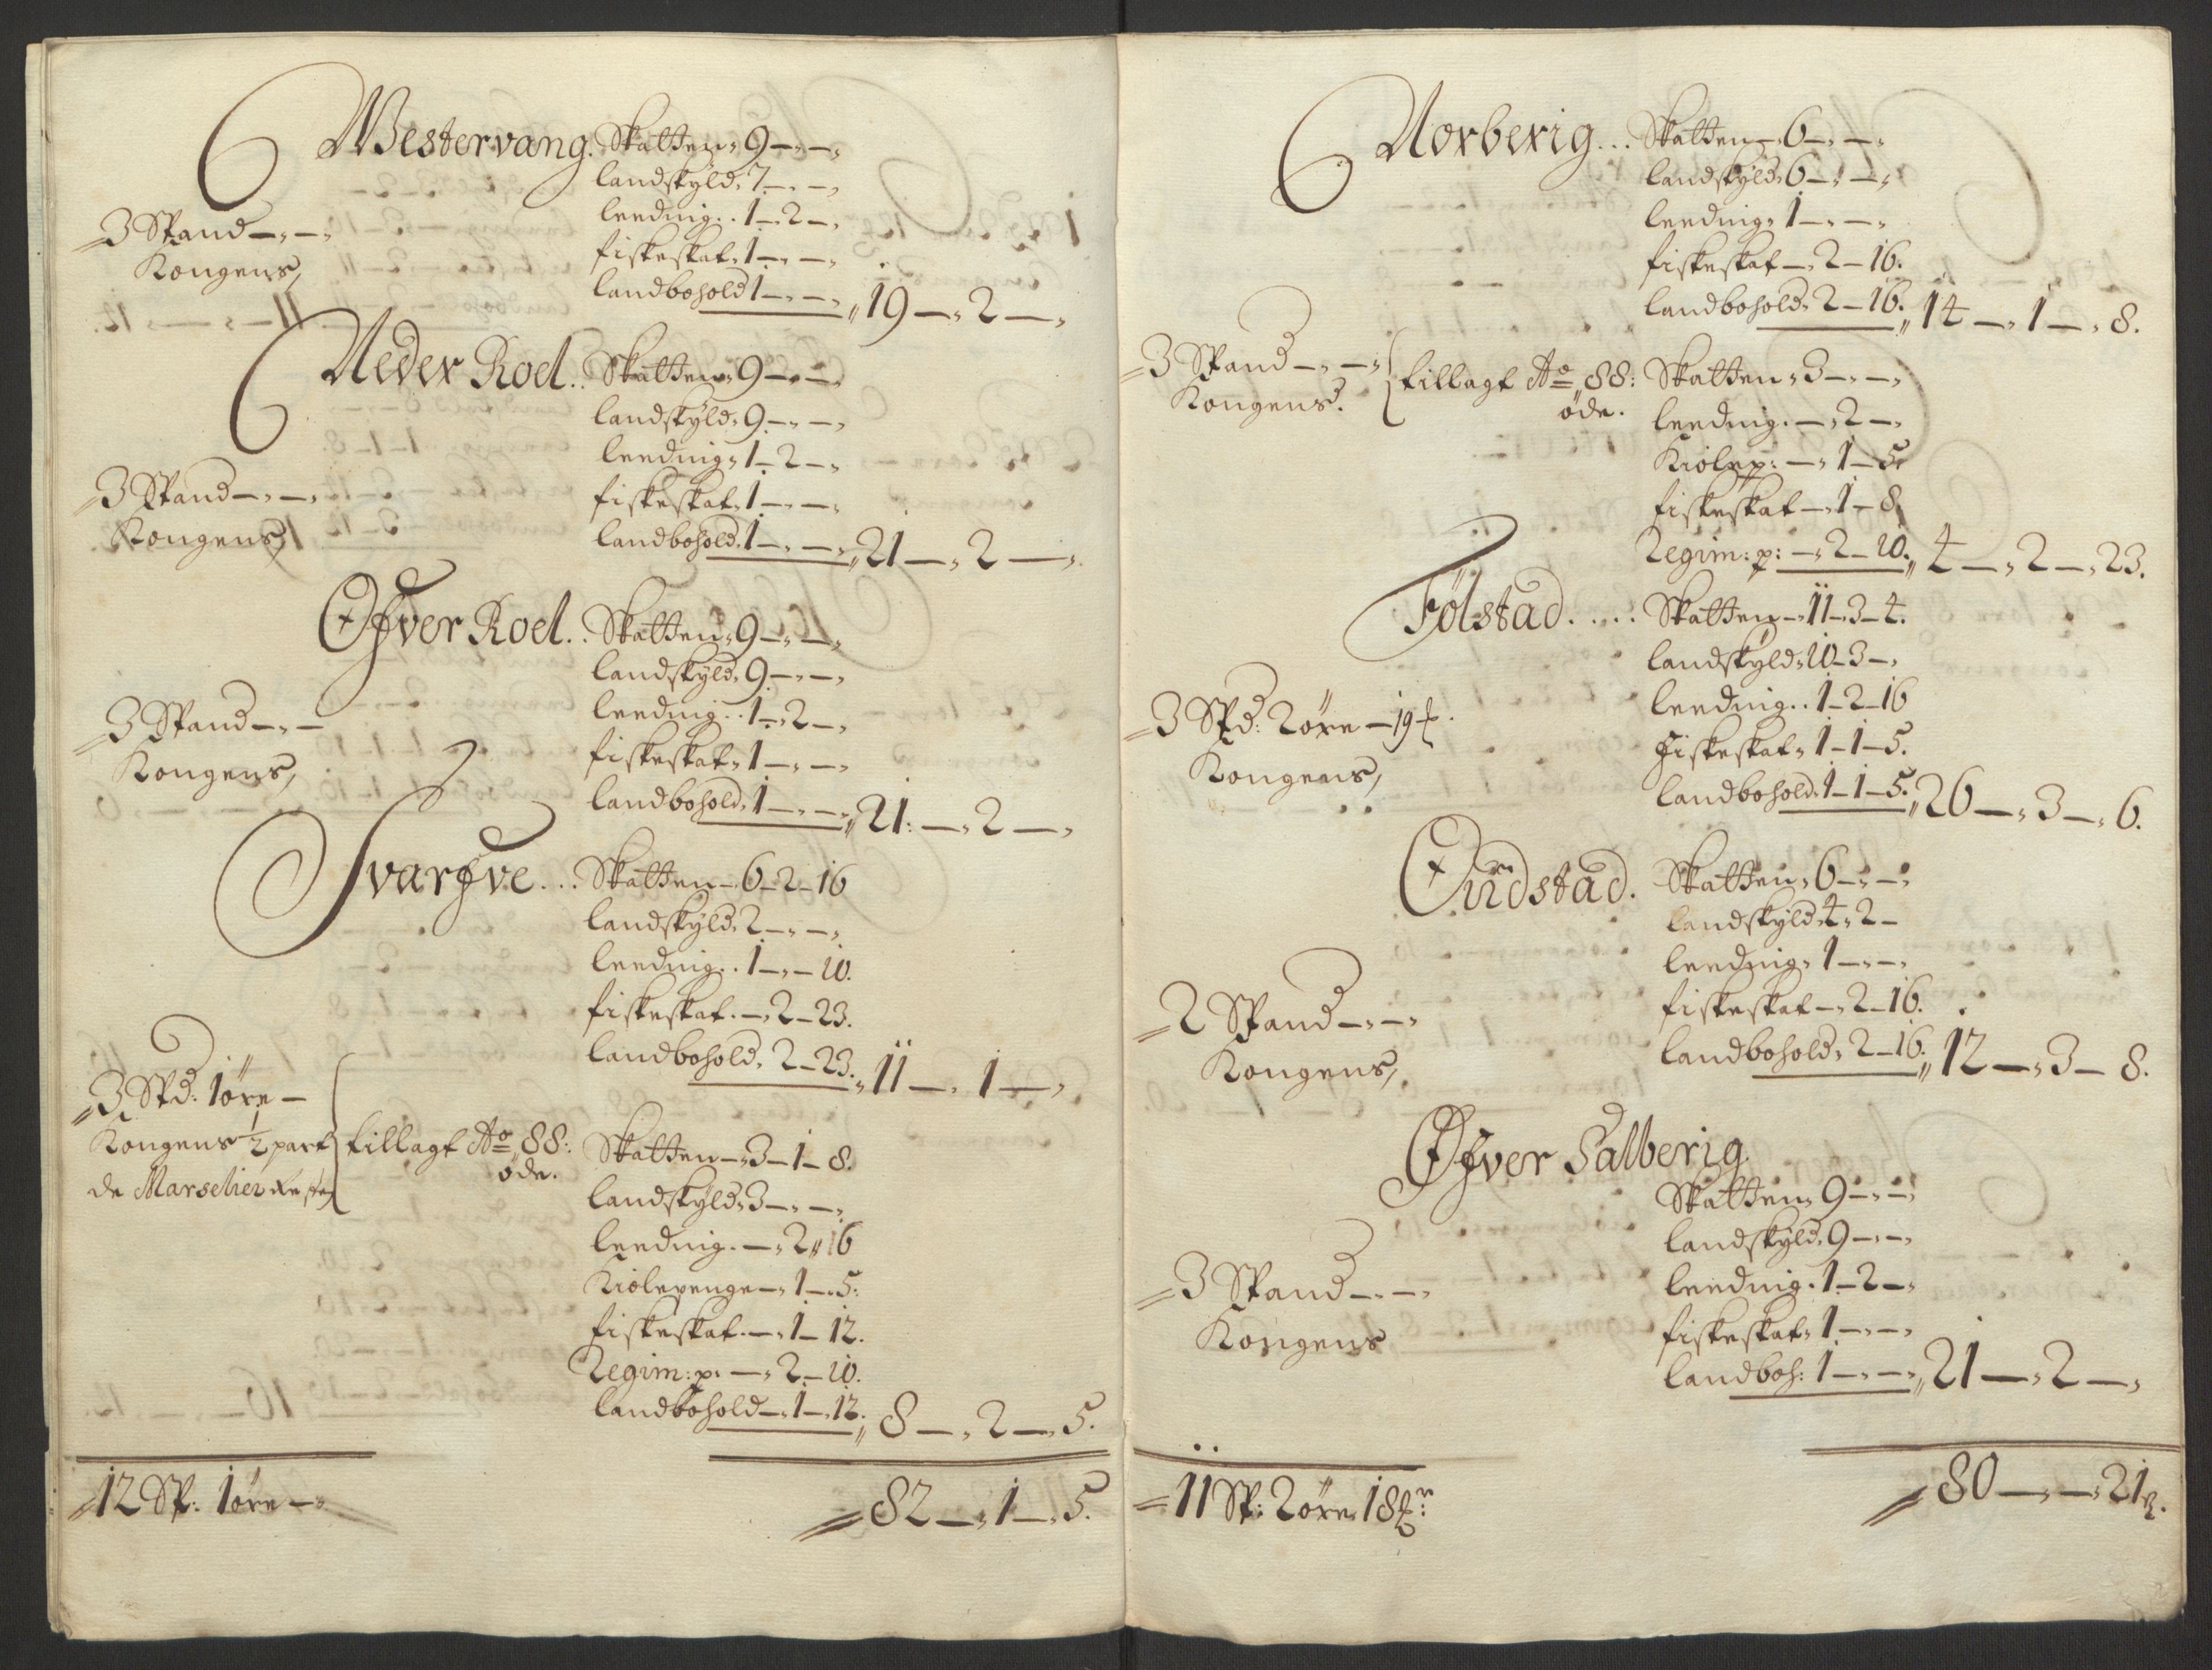 Westervang. Skatten 9 — —
landskyld 7 — —
leeding. . 1 — 2 —
3 Spand — —
fiskeskat 1 — —
Kongens,
landbohold 1 — — 19 — 2 —
Neder Roel. . Skatten 9 — —
landskyld 9 — —
leeding 1 — 2 —
3 Spand — —
fiskeskat 1 — —
Kongens,
landbohold 1 — — 21 — 2 —
Øfver Roel. . Skatten 9 — —
landskyld 9 — —
leeding. . 1 — 2 —
3 Spand — —
fiskeskat 1 — —
Kongens,
landbohold 1 — — 21 — 2 —
Svarfve . . . Skatten — 6 — 2 — 16
landskyld 2 — —
leeding. . 1 — — 10.
fiskeskat. — 2 — 23.
landbohold, 2 — 23. 11 — 1 —
3 Spd: 1 øre —
Kongens ½ part
de Marselier
tillagt Ao 88:
øde.
Skatten — 3 — 1 — 8.
landskyld 3 — —
leeding. — 2 16
Kiølepenge — 1 — 5:
fiskeskat. — 1 — 12.
Regim: p: — 2 — 10.
landbohold — 1 — 12. 8 — 2 — 5.
12 Sp: 1 øre —
82 — 1 — 5.
Norberig . . . Skatten — 6 — —
landskyld 6 — —
leeding 1 — —
fiskeskat — 2 — 16.
landbohold 2 — 16. 14 — 1 — 8.
3 Spand — —
Kongens.
tillagt Ao 88:
øde.
Skatten 3 — —
leeding. — 2 —
Kiølep: — 1 — 5
fiskeskat — 1 — 8
Regim: p: — 2 — 10. 4 — 2 — 23.
Følstad. . . . . Skatten — 11 — 3 — 4.
landskyld 10 — 3 —
leeding. . 1 — 2 — 16
3 Spd: 2 øre — 19
fiskeskat 1 — 1 — 5.
Kongens,
landbohold 1 — 1 — 5. 26 — 3 — 6.
Oindstad. Skatten 6 — —
landskyld 4 2 —
leeding 1 — —
2 Spand — —
fiskeskat — 2 — 16.
Kongens,
landbohold 2 — 16. 12 — 3 — 8.
Øfver Salberig
Skatten 9 — —
landskyld 9 — —
3 Spand — —
leeding. 1 — 2 —
Kongens
fiskeskat 1 — —
landboh: 1 — — 21 — 2 —
11 Sp: 2 øre 18
80 — — 21